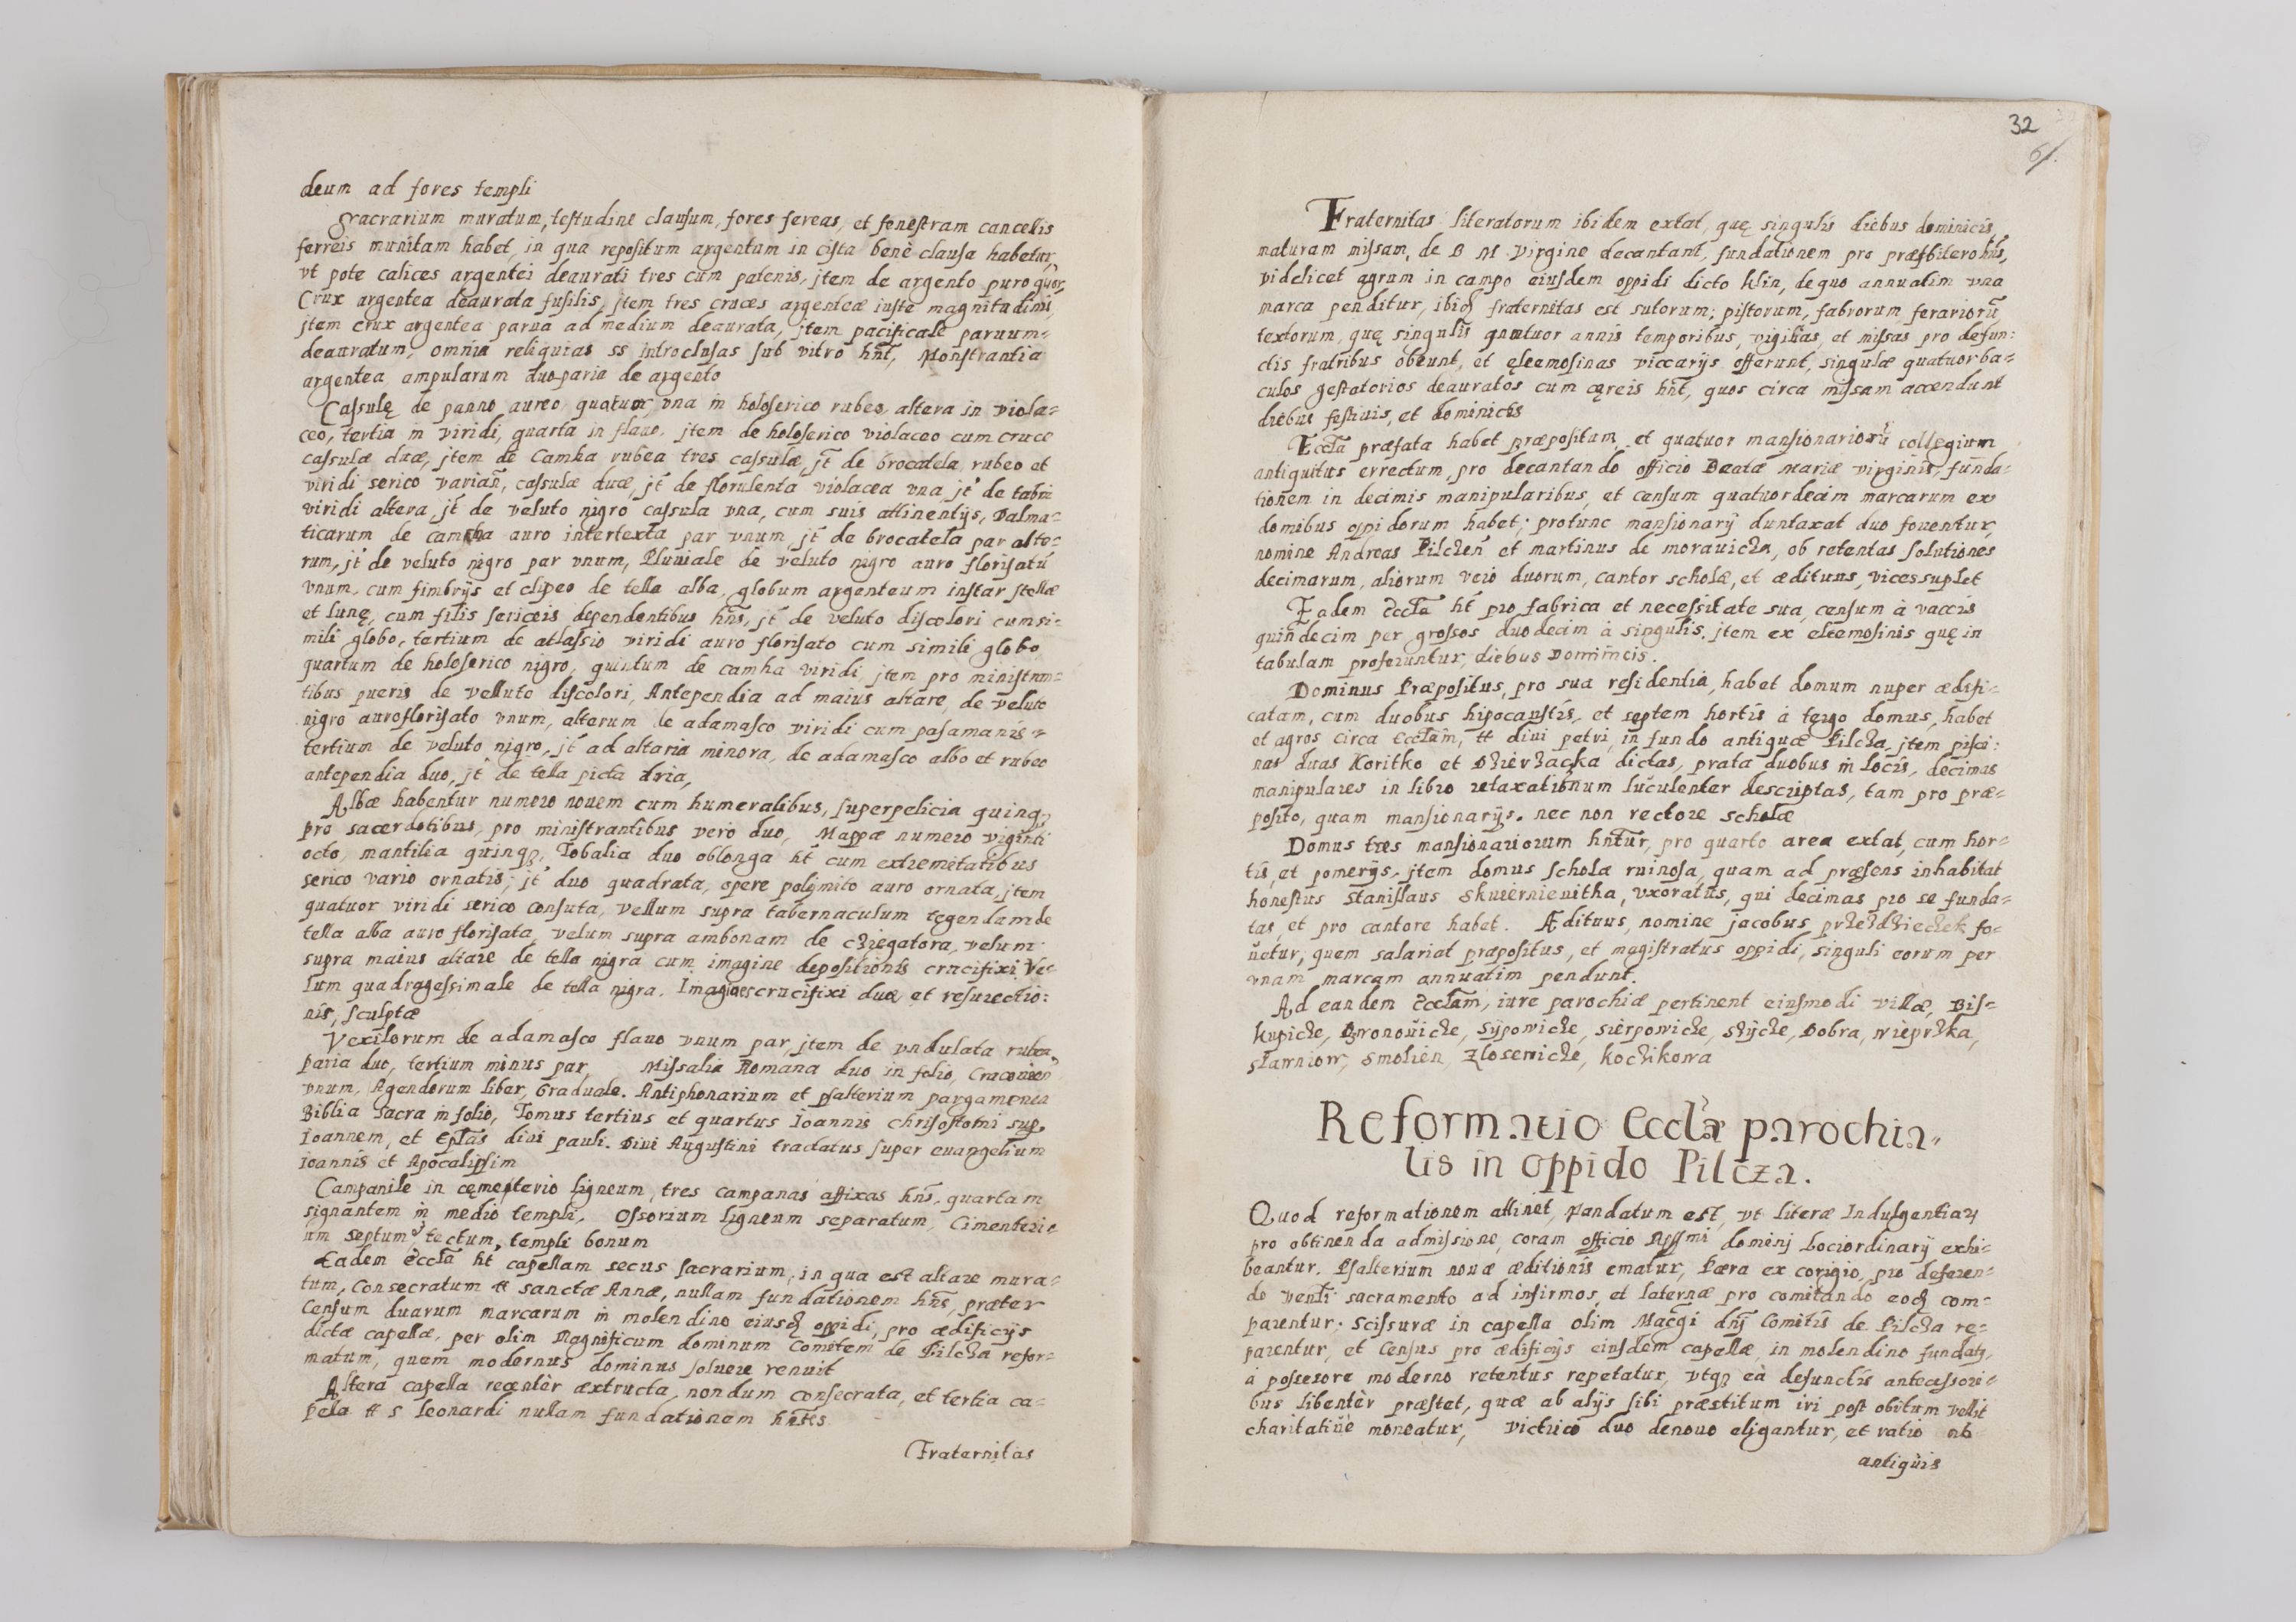 deum ad fores templi
Sacrarium muratum, testudine clausum, fores fereas, et fenestram cancellis
ferreis munitam habet, in qua repositum argentum in cista benè clausa habetur,
vt pote calices argentei deaurati tres cum patenis, jtem de argento puro
Crux argentea deaurata fusilis, jtem tres cruces argenteæ iustæ magnitudinis,
jtem crux argentea parua ad medium deaurata, jtem pacificale paruum-
deauratum, omnia reliquias ss introclusas sub vitro hñt, Monstrantia
argentea, ampularum duo paria de argento
Casulę de panno aureo quatuor, vna in holoserico rubeo, altera in viola=
ceo, tertia in viridi, quarta in flauo, jtem de holoserico violaceo cum cruce
casulæ duæ, jtem de Camha rubea tres casulæ, jt̃ de brocatela rubeo et
viridi serico varian̄, casulæ duæ, jt̃ de florulenta violacea vna, jt̃ de tabin
viridi altera, jt̃ de veluto nigro casula vna, cum suis attinentijs, Dalma=
ticarum de camha auro intertexta par vnum, jt̃ de brocatela par alte=
rum, jt̃ de veluto nigro par vnum, Pluuiale de veluto nigro auro florisatũ
vnum, cum fimbrijs et clipeo de tella alba, globum argenteum instar stellæ
et lunę, cum filis sericeis dependentibus hñs, jt̃ de veluto discolori cum si=
mili globo, tertium de atlassio viridi auro florisato cum simili globo
quartum de holoserico nigro, quintum de camha viridi, jtem pro ministran=
tibus pueris de velluto discolori, Antependia ad maius altare, de veluto
nigro auroflorisato vnum, alterum de adamasco viridi cum pasamanis
tertium de veluto nigro, jt̃ ad altaria minora, de adamasco albo et rubeo
antependia duo, jt̃ de tella picta dria,
Albæ habentur numero nouem cum humeralibus, superpelicia quinq,
pro sacerdotibus, pro ministrantibus vero duo, Mappæ numero viginti
octo, mantilia quinq, Tobalia duo oblonga ht̃ cum extremitatibus
serico vario ornatis, jt̃ duo quadrata, opere polÿmito auro ornata, jtem
quatuor viridi serico consuta, Vellum supra tabernaculum tegendum de
tella alba auro florisata, velum supra ambonam de cziegatora, velum
supra maius altare de tella nigra cum imagine depositionis crucifixi, Ve=
lum quadragessimale de tella nigra. Imagines crucifixi duæ et resurectio:
nis, sculptæ
Vexilorum de adamasco flauo vnum par, jtem de vndulata rubea,
paria duo, tertium minus par, Missalia Romana duo in folio, Cracouien̄
vnum, Agendorum liber, Graduale. Antiphonarium et psalterium pargamenea
Biblia sacra in folio, Tomus tertius et quartus Ioannis chrisostomi sup.
Ioannem, et Ep̃las diui pauli. Diui Augustini tractatus super euangelium
ioannis et Apocalipsim
Campanile in cęmeterio ligneum, tres campanas affixas hñs, quartam
signantem in medio templi, Ossorium ligneum separatum, Cimenteri
um septum, tectum, templi bonum
Eadem Eccl̃a ht̃ capellam secus sacrarium, in qua est altare mura=
tum, Consecratum tt sanctæ Annæ, nullam fundationem hñs, præter
Censum duarum marcarum in molendino eiusd oppidi, pro ædificijs
dictæ capellæ, per olim Magnificum dominum Comitem de Pilcza refor=
matum, quem modernus dominus soluere renuit
Altera capella recentèr extructa, nondum consecrata, et tertia ca=
pela tt s Leonardi nullam fundationem hñtes
Fraternitas
32
61.
Fraternitas literatorum ibidem extat, quę singulis diebus dominicis,
maturam missam, de B M Virgine decantant, fundationem pro præsbitero hñs,
videlicet agrum in campo eiusdem oppidi dicto klin, de quo annuatim vna
marca penditur, ibid fraternitas est sutorum, pistorum, fabrorum, ferariorũ
textorum, quę singulis quatuor annis temporibus, vigilias, et missas pro defun:
ctis fratribus obeunt, et ęleemosinas viccarijs offerunt, singulæ quatuor ba=
culos gestatorios deauratos cum cęreis hñt, quos circa missam accendunt
diebus festiuis, et dominicis
Eccl̃a præfata habet præpositum et quatuor mansionariorũ collegium
antiquitus errectum, pro decantando officio Beatæ Mariæ virginis, funda=
tionem in decimis manipularibus, et censum quatuordecim marcarum ex
domibus oppidorum habet, protunc mansionarij duntaxat duo fouentur,
nomine Andreas Pilczen̄ et Martinus de morauicza, ob retentas solutiones
decimarum, aliorum vero duorum, cantor scholæ, et ædituus, vices suplet
Eadem Eccl̃a ht̃ pro fabrica et necessitate sua, censum à vaccis
quindecim per grossos duodecim à singulis, jtem ex eleemosinis quę in
tabulam proferuntur, diebus Dominicis.
Dominus Præpositus, pro sua residentia, habet domum nuper ædifi=
catam, cum duobus hipocaustis, et septem hortis à tergo domus, habet
et agros circa Eccl̃am, tt diui petri, in fundo antiquæ Pilcza, jtem pisci:
nas duas Koritko et Dzierzaczka dictas, prata duobus in locis, decimas
manipulares in libro retaxationum luculenter descriptas, tam pro præ=
posito, quam mansionarijs. nec non rectore scholæ
Domus tres mansionariorum hñtur, pro quarto area extat, cum hor=
tis, et pomerijs, jtem domus scholæ ruinosa, quam ad præsens inhabitat
honestus Stanislaus Skwiernieuitha, vxoratus, qui decimas pro se funda=
tas, et pro cantore habet. Ædituus, nomine jacobus przezdzieczek fo=
uetur, quem salariat præpositus, et magistratus oppidi, singuli eorum per
vnam marcam annuatim pendunt.
Ad eandem Eccl̃am, iure parochiæ pertinent eiusmodi villæ, Bis=
kupicze, Dwonowicze, Sÿpowicze, sierpowicze, Szÿcze, Dobra, wieprzka,
sławniow, Smolien, Zlosewicze, Koczikowa
Reformatio Eccl̃æ parochia=
lis in oppido Pilcza.
Quod reformationem attinet, Mandatum est, vt literæ Indulgentiarum
pro obtinenda admissione, coram officio Rssmi dominj Lociordinarij exhi=
beantur. Psalterium nouæ æditionis ematur, Pæra ex corigio, pro deferen=
do Venti sacramento ad infirmos, et laternæ pro comitando eod com=
parentur. Scissuræ in capella olim Magci dnj Comitis de Pilcza re=
parentur, et Census pro ædificijs eiusdem capellæ, in molendino fundat,
à possesore moderno retentus repetatur, vtq eà defunctis antecessori=
bus libentèr præstet, quæ ab alijs sibi præstitum iri post obitum vellit
charitatiuè moneatur, Victrico duo denouo eligantur, et ratio ab
antiquis